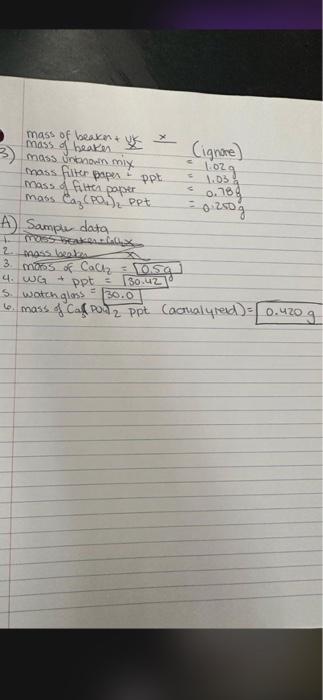 mass of beaker + UK x
mass of beaker (ignore)
B) mass unknown mix = 1.02g
mass filter paper + ppt = 1.03g
mass of filter paper = 0.78g
mass Ca3(PO4)2 ppt = 0.250g
A) Sample data
1. mass beaker + CaCl2 x
2. mass beaker x
3. mass of CaCl2 = 0.5g
4. WG + ppt = 30.42
5. watch glass = 30.0
6. mass of Ca3(PO4)2 ppt (acrual yield) = 0.420 g